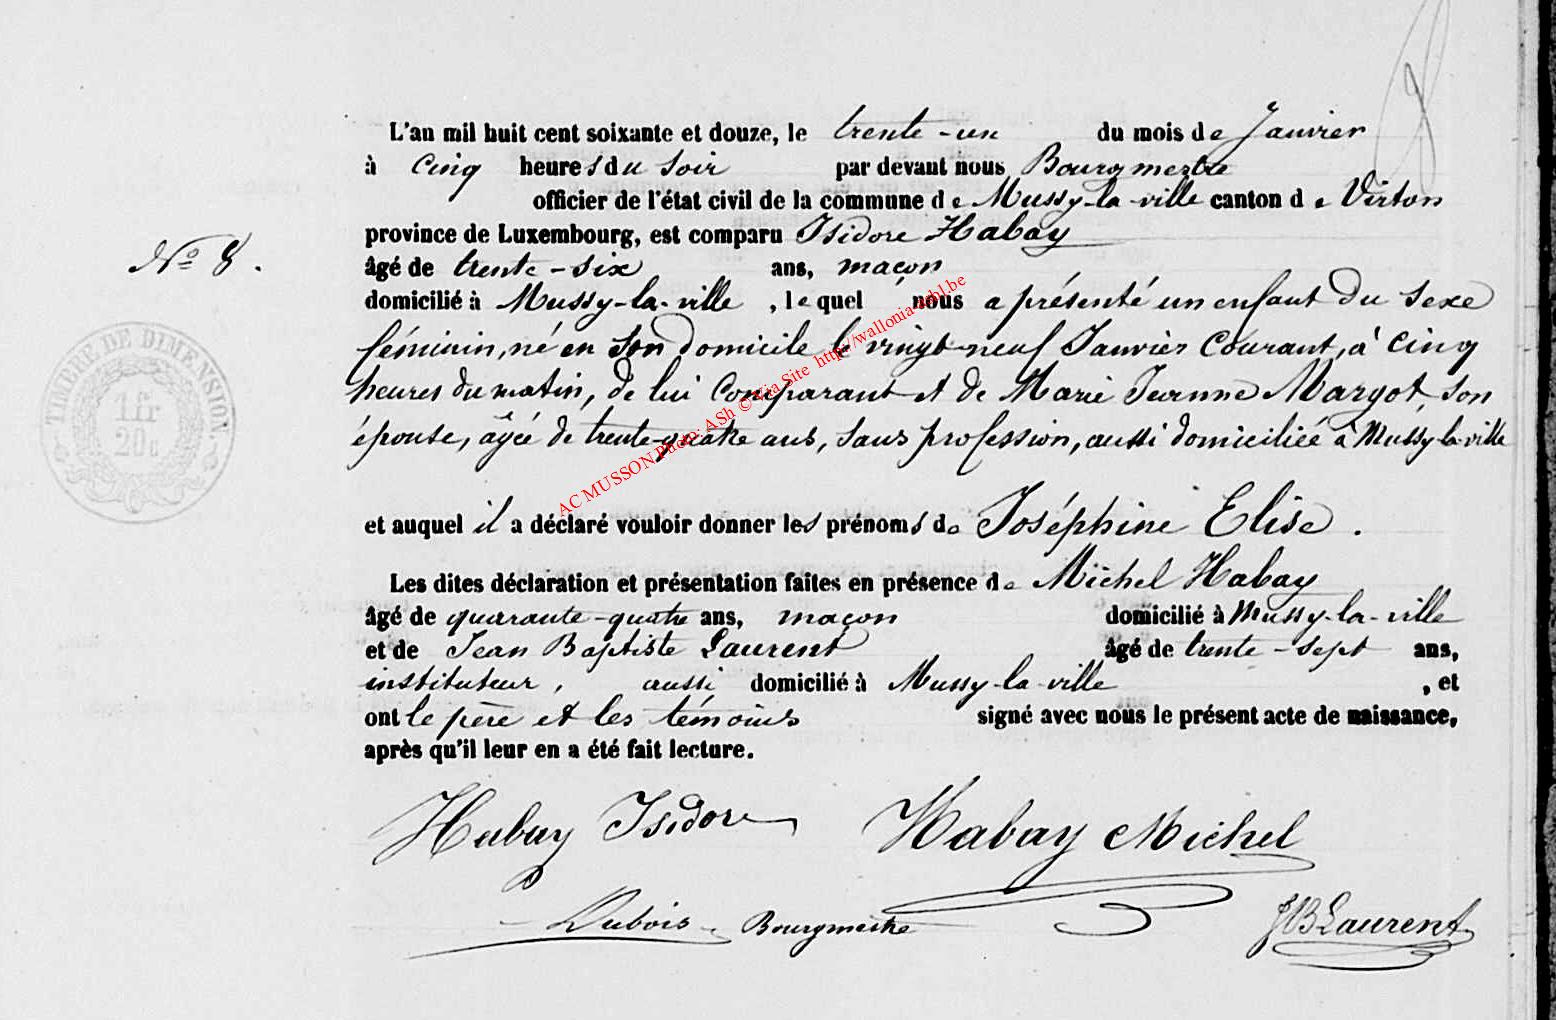 L'an mil huit cent soixante et douze, le trente-un du mois de Janvier
à cinq heures du soir par devant nous Bourgmestre
officier de l'état civil de la commune de Mussy-la-ville canton de Virton
province de Luxembourg, est comparu Isidore Habay
N° 8.
âgé de trente-six ans, maçon
domicilié à Mussy-la-ville, lequel nous a présenté un enfant du sexe
féminin, né en son domicile le vingt-neuf Janvier courant, à cinq
heures du matin, de lui comparant et de Marie Jeanne Margot, son
épouse, âgée de trente-quatre ans, sans profession, aussi domiciliée à Mussy-la-ville
TIMBRE DE DIMENSION.
1 fr
20 c
AC MUSSON Photo: ASh © Via Site http://wallonia-asbl.be
et auquel il a déclaré vouloir donner les prénoms de Joséphine Elise.
Les dites déclaration et présentation faites en présence de Michel Habay
âgé de quarante-quatre ans, maçon domicilié à Mussy-la-ville
et de Jean Baptiste Laurent âgé de trente-sept ans,
instituteur, aussi domicilié à Mussy-la-ville, et
ont le père et les témoins signé avec nous le présent acte de naissance,
après qu'il leur en a été fait lecture.
Habay Isidore Habay Michel
Dubois Bourgmestre JBLaurent